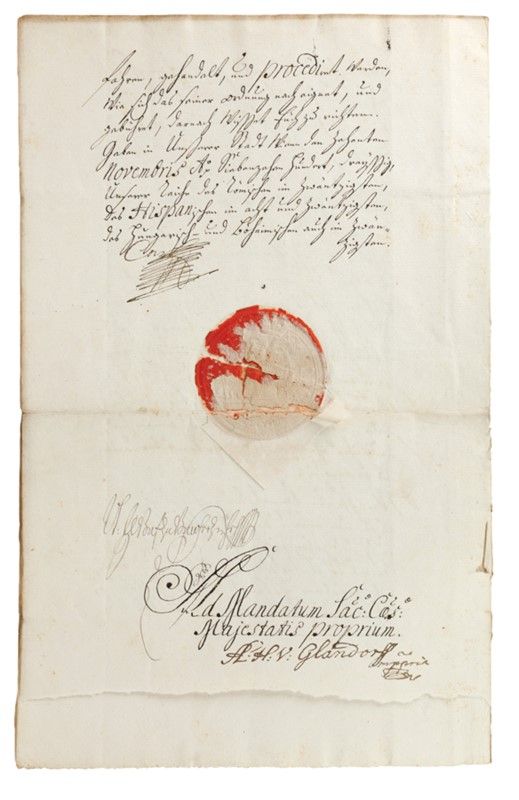 fahren, gehandelt, und procedirt werden,
wie sich das seiner ordnung nach eignet, und
gebühret, darnach wisset Euch zu richten.
Geben in Unserer Stadt Wien den zehenten
Novembris Aõ Siebenzehen hundert, dreyssig,
Unserer Reiche des Römischen im zwäntzigsten,
des Hispanischen im acht und zwäntzigsten,
des Hungarisch- und Böheimischen auch im zwän-
tzigsten.
Carl
Ad Mandatum Sac: Caes:
Majestatis proprium.
A: H: V: Glandorff